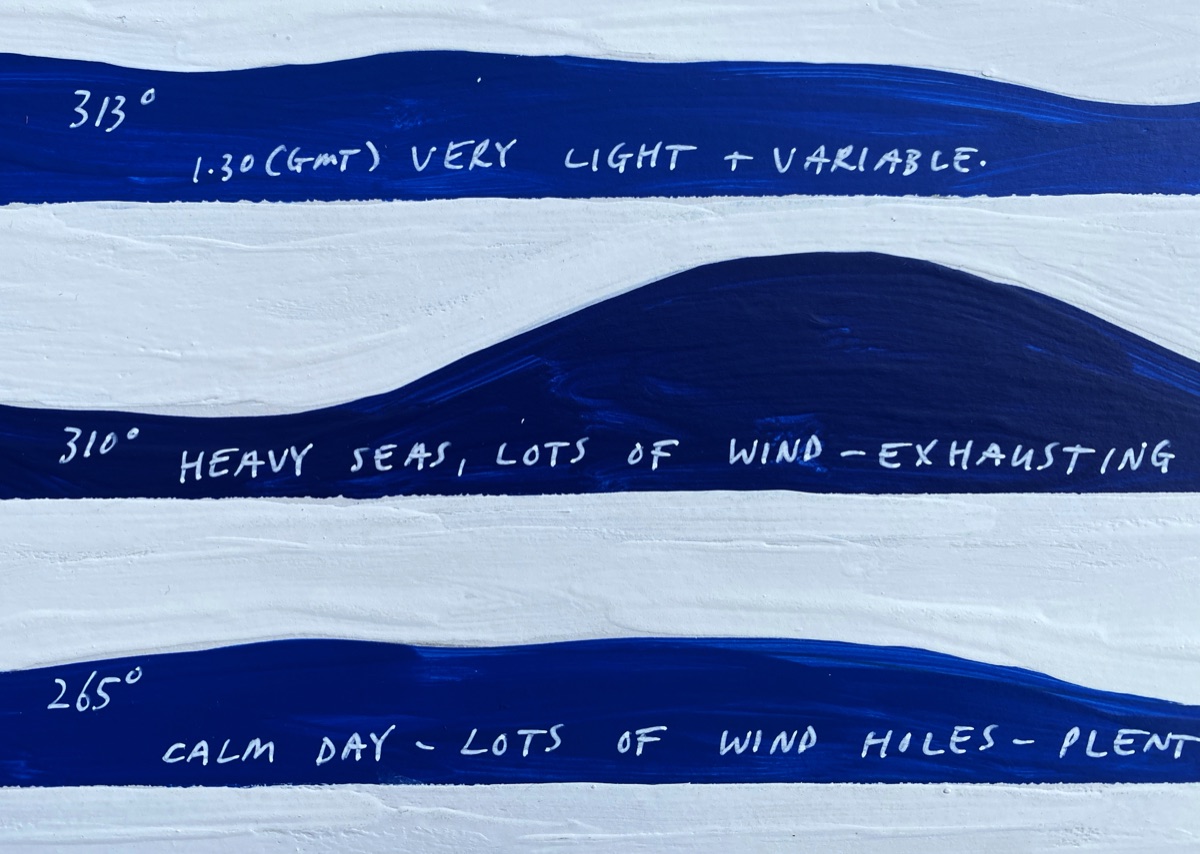 313°
1.30 (GMT) VERY LIGHT + VARIABLE.
310° HEAVY SEAS, LOTS OF WIND - EXHAUSTING
265°
CALM DAY - LOTS OF WIND HOLES - PLENT